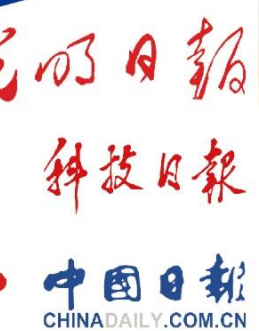 光明日报
科技日报
中國日報
CHINADAILY.COM.CN